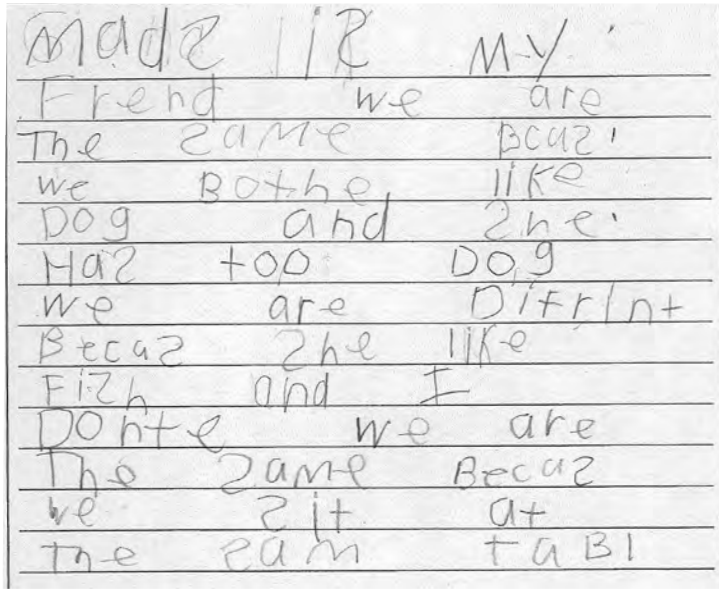 Made is My
Frend we are
The same Bcas
we Bothe like
Dog and She
Has too Dog
we are Difrint
Becas She like
Fish and I
Donte we are
The Same Becas
we Sit at
The sam taBl